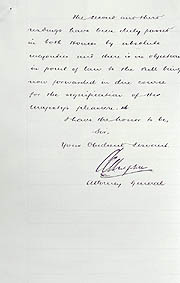 The second and third
readings have been duly passed
in both Houses by absolute
majorities and there is no objection
in point of law to the Bill being
now forwarded in due course
for the signification of Her
Majesty's pleasure.
I have the honor to be,
Sir,
Your Obedient Servant
Attorney General